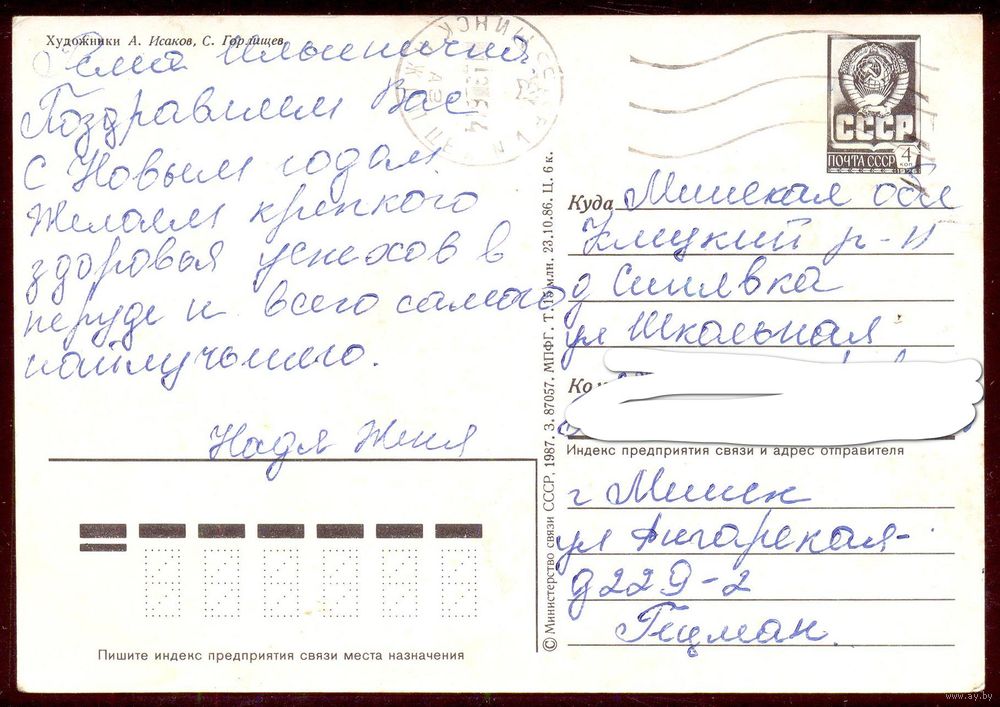 Художники А. Исаков, С. Горлищев
Ильинична
Поздравляем Вас
с Новым годом
Желаем крепкого
здоровья успехов в
труде и всего самого
найлучьшего.
Надя Женя
Пишите индекс предприятия связи места назначения
© Министерство связи СССР, 1987. З. 87057. МПФГ. Т. 15 млн. 23.10.86. Ц. 6 к.
МИНСК
СССР
ПОЧТА СССР 4 КОП
Куда Минская обл
Клецкий р-н
д Синявка
ул Школьная
Индекс предприятия связи и адрес отправителя
г Минск
ул
д 229-2
Гицман.
www.ay.by